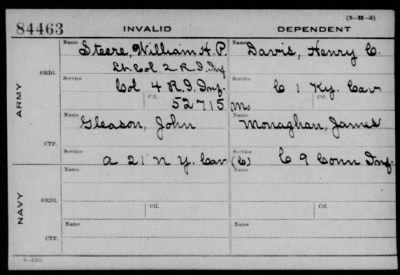 (3-H-5)
84463 INVALID DEPENDENT
ARMY
ORIG.
Name Steere, William H. P. Name Davis, Henry C.
Lt. Col 2 R.I. Inf
Service Col 4 R.I. Inf. Service C 1 Ky. Cav
Ctf. 52715 Ctf. (M)
CTF.
Name Gleason, John Name Monaghan, James
Service A 21 N.Y. Cav Service (C) C 9 Conn Inf.
NAVY
ORIG.
Name Name
Ctf. Ctf.
CTF.
Name Name